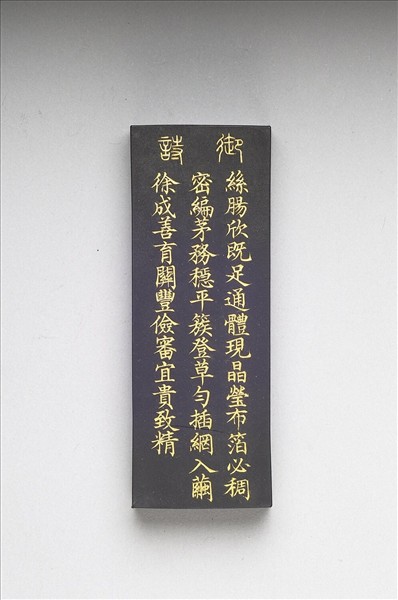 御詩
絲腸欣既足通體現晶瑩布箔必稠
密編茅務穩平簇登草勻插網入繭
徐成善育關豐儉審宜貴致精